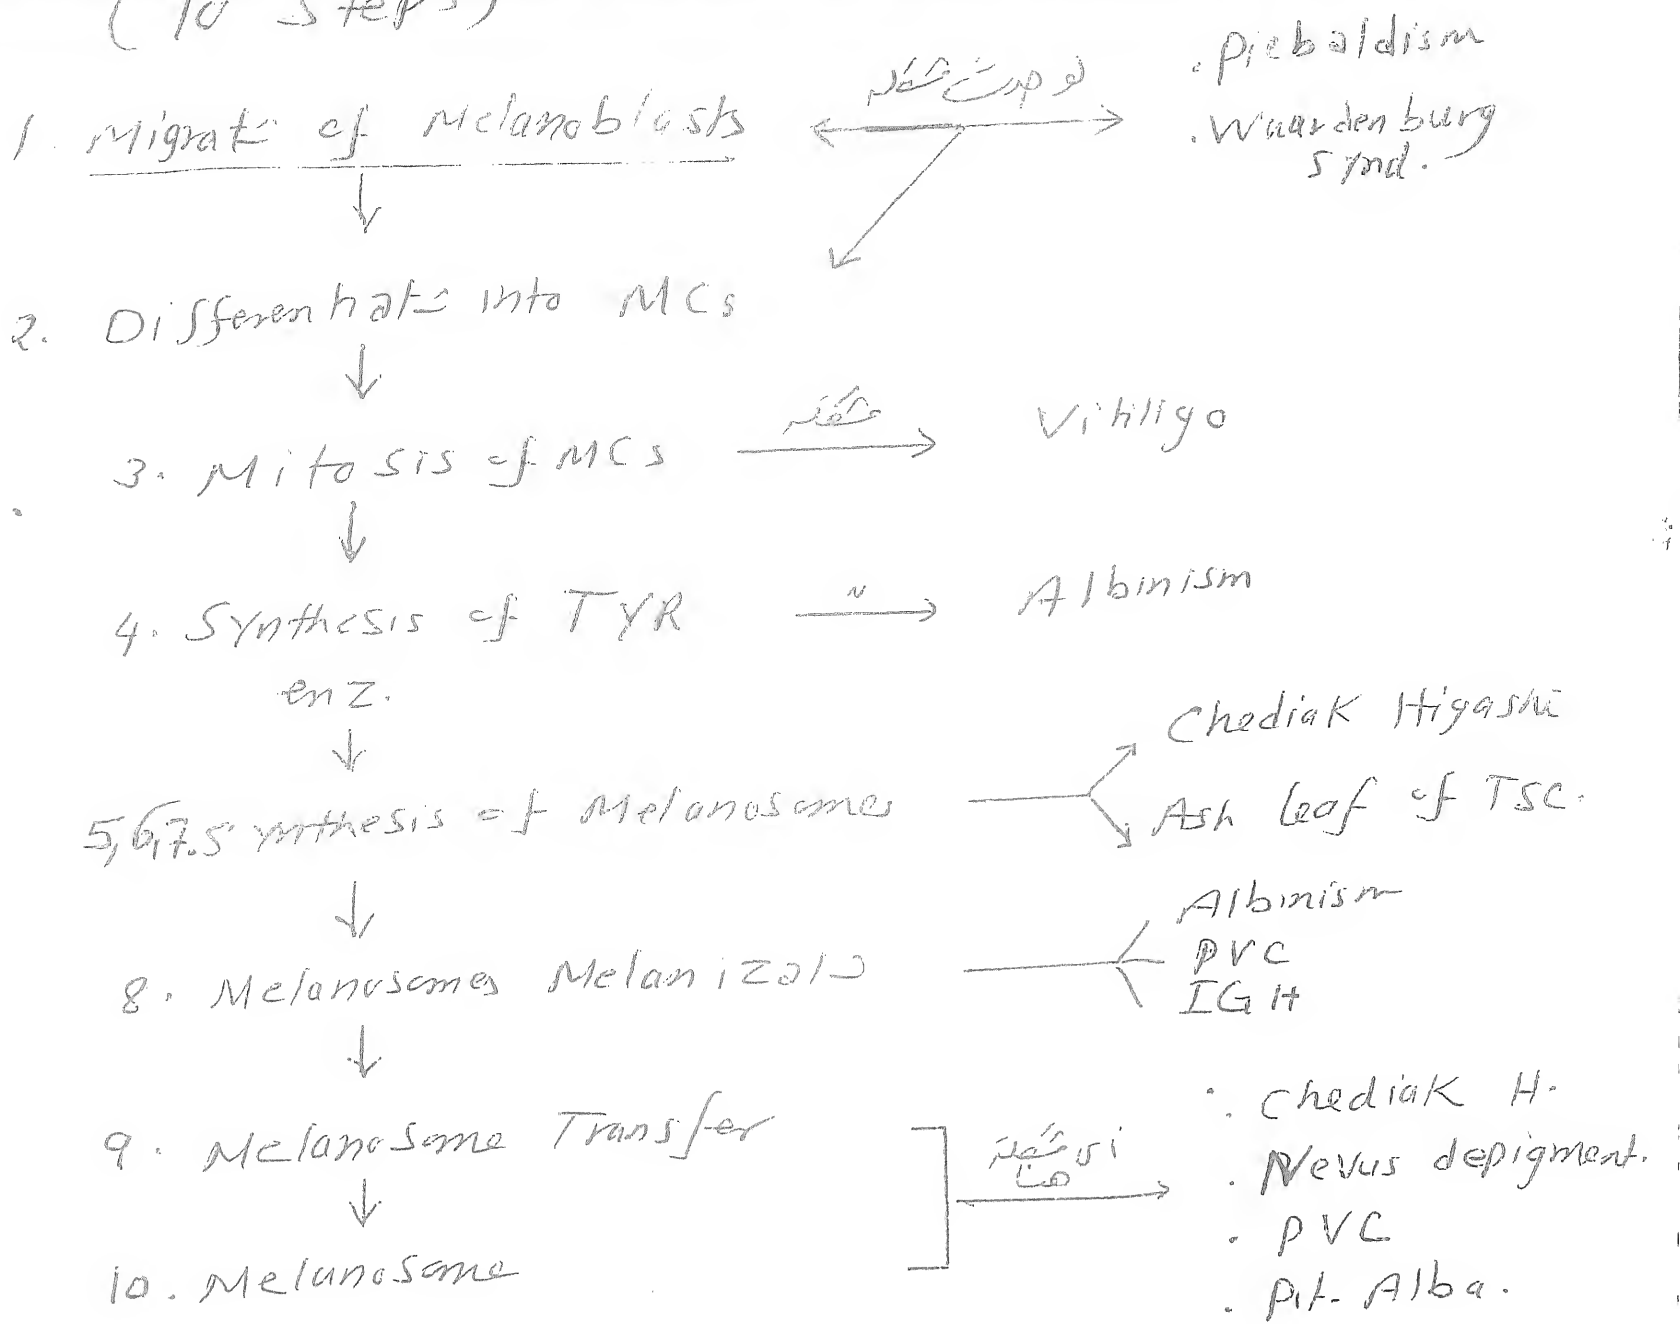 (10 steps)
1. Migrat= of Melanoblasts
لو حصلت مشكلة
. Piebaldism
. Waardenburg
synd.
2. Differentiat= into MCs
3. Mitosis of MCs
مشكلة
Vitiligo
4. Synthesis of TYR
enz.
〃
Albinism
5,6,7. Synthesis of Melanosomes
Chediak Higashi
Ash leaf of TSC.
8. Melanosomes Melanizat=
Albinism
PVC
IGH
9. Melanosome Transfer
10. Melanosome
أى مشكلة
هنا
. Chediak H.
. Nevus depigment.
. PVC
. Pit. Alba.